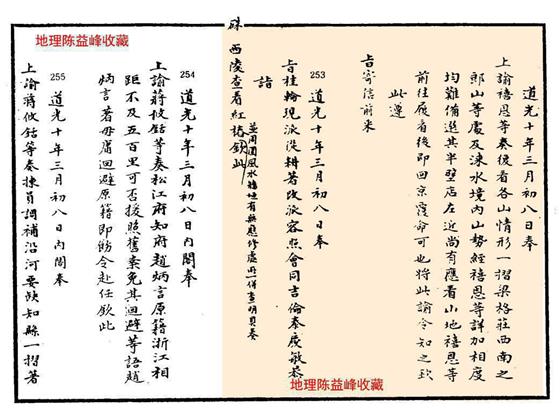 地理陈益峰收藏
道光十年三月初八日奉
上諭禧恩等奏復看各山情形一摺梁格莊西南之
郎山等處及淶水境內山勢經禧恩等詳加相度
均難備選其半壁店左近尚有應看山地禧恩等
前往履看後即回京覆命可也將此諭令知之欽
此遵
旨寄信前來
253 道光十年三月初八日奉
旨桂輪現派從耕著改派容照會同吉倫泰慶敏恭
詣
西陵查看紅樁欽此
硃
並周圍風水牆垣有無應修處所一併查明具奏
254 道光十年三月初八日內閣奉
上諭蔣攸銛等奏松江府知府趙炳言原籍浙江相
距不及五百里可否援照舊案免其迴避等語趙
炳言著毋庸迴避原籍即飭令赴任欽此
255 道光十年三月初八日內閣奉
上諭蔣攸銛等奏揀員調補沿河要缺知縣一摺著
地理陈益峰收藏